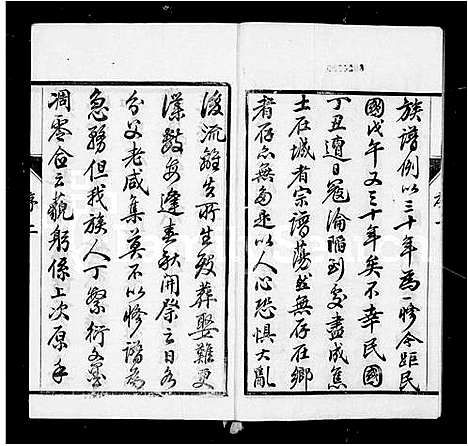 族譜例以三十年為一修今距民
國戊午又三十年矣不幸民國
丁丑遭日冦淪陷到處盡成焦
土在城者宗譜蕩然無存在鄉
者存亦無多是以人心恐惧大亂
後流離失所生殁葬娶難更
僕數每逢春秋開祭之日各
分父老咸集莫不以修譜為
急務但我族人丁繁衍文墨
凋零合云藐躬係上次原手
序一
序二